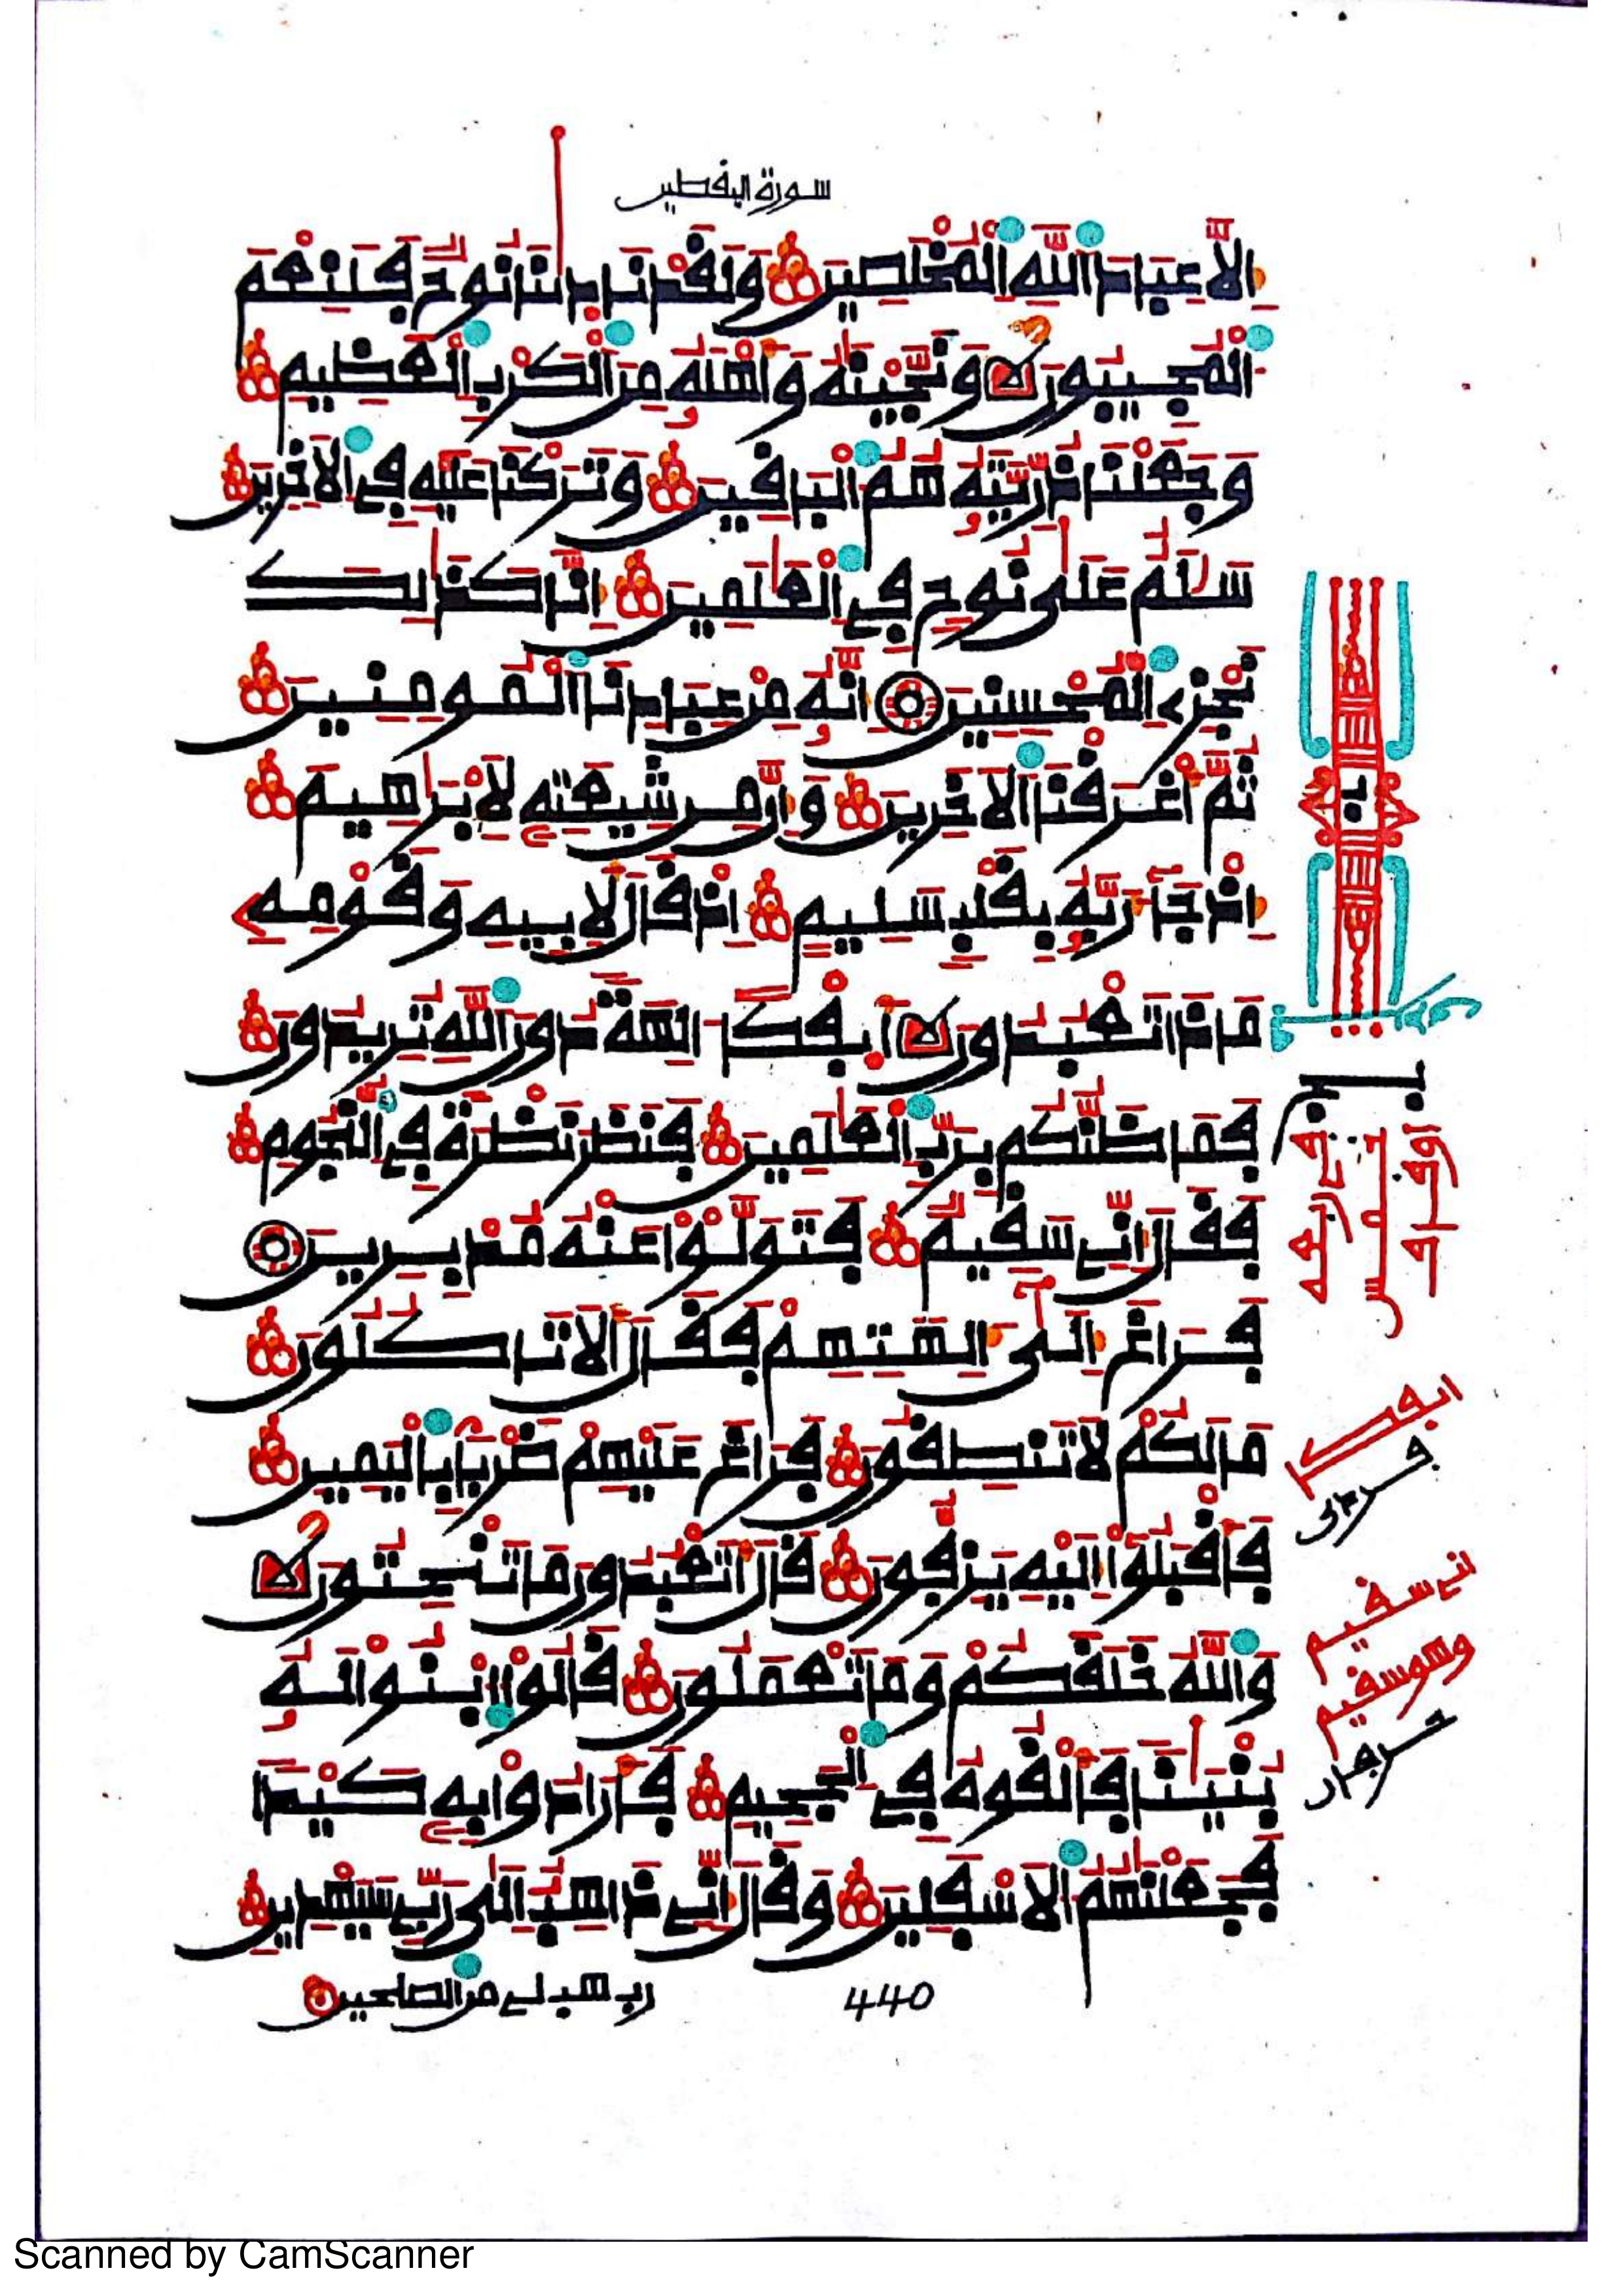 سورة اليقطين
إِلَّا عِبَادَ اللَّهِ الْمُخْلَصِينَ وَلَقَدْ نَادَىٰنَا نُوحٌ فَلَنِعْمَ
الْمُجِيبُونَ لا وَنَجَّيْنَٰهُ وَأَهْلَهُ مِنَ الْكَرْبِ الْعَظِيمِ
وَجَعَلْنَا ذُرِّيَّتَهُ هُمُ الْبَاقِينَ وَتَرَكْنَا عَلَيْهِ فِي الْآخِرِينَ
سَلَٰمٌ عَلَىٰ نُوحٍ فِي الْعَٰلَمِينَ إِنَّا كَذَٰلِكَ
نَجْزِي الْمُحْسِنِينَ إِنَّهُ مِنْ عِبَادِنَا الْمُومِنِينَ
ثُمَّ أَغْرَقْنَا الْآخَرِينَ وَإِنَّ مِن شِيعَتِهِ لَإِبْرَٰهِيمَ
إِذْ جَآءَ رَبَّهُ بِقَلْبٍ سَلِيمٍ إِذْ قَالَ لِأَبِيهِ وَقَوْمِهِ
مَاذَا تَعْبُدُونَ لا أَئِفْكًا ءَالِهَةً دُونَ اللَّهِ تُرِيدُونَ
فَمَا ظَنُّكُم بِرَبِّ الْعَٰلَمِينَ فَنَظَرَ نَظْرَةً فِي النُّجُومِ
فَقَالَ إِنِّي سَقِيمٌ فَتَوَلَّوْا عَنْهُ مُدْبِرِينَ
فَرَاغَ إِلَىٰ ءَالِهَتِهِمْ فَقَالَ أَلَا تَاكُلُونَ
مَا لَكُمْ لَا تَنطِقُونَ فَرَاغَ عَلَيْهِمْ ضَرْبًا بِالْيَمِينِ
فَأَقْبَلُوا إِلَيْهِ يَزِفُّونَ قَالَ أَتَعْبُدُونَ مَا تَنْحِتُونَ لا
وَاللَّهُ خَلَقَكُمْ وَمَا تَعْمَلُونَ قَالُوا ابْنُوا لَهُ
بُنْيَٰنًا فَأَلْقُوهُ فِي الْجَحِيمِ فَأَرَادُوا بِهِ كَيْدًا
فَجَعَلْنَٰهُمُ الْأَسْفَلِينَ وَقَالَ إِنِّي ذَاهِبٌ إِلَىٰ رَبِّي سَيَهْدِينِ
رب هب لي من الصلحين
440
اني سقيم
وهو سقيم
Scanned by CamScanner